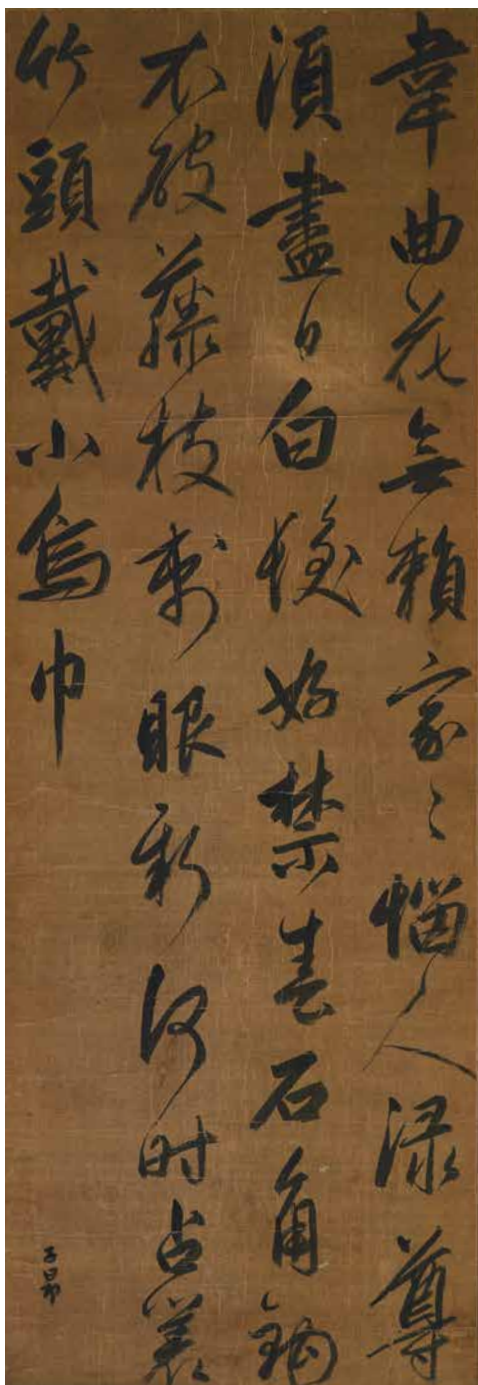 韋曲花無賴家〻惱人淥尊
須盡日白髮好禁春石角鉤
衣破藤枝刺眼新何時占叢
竹頭戴小烏巾
子昂